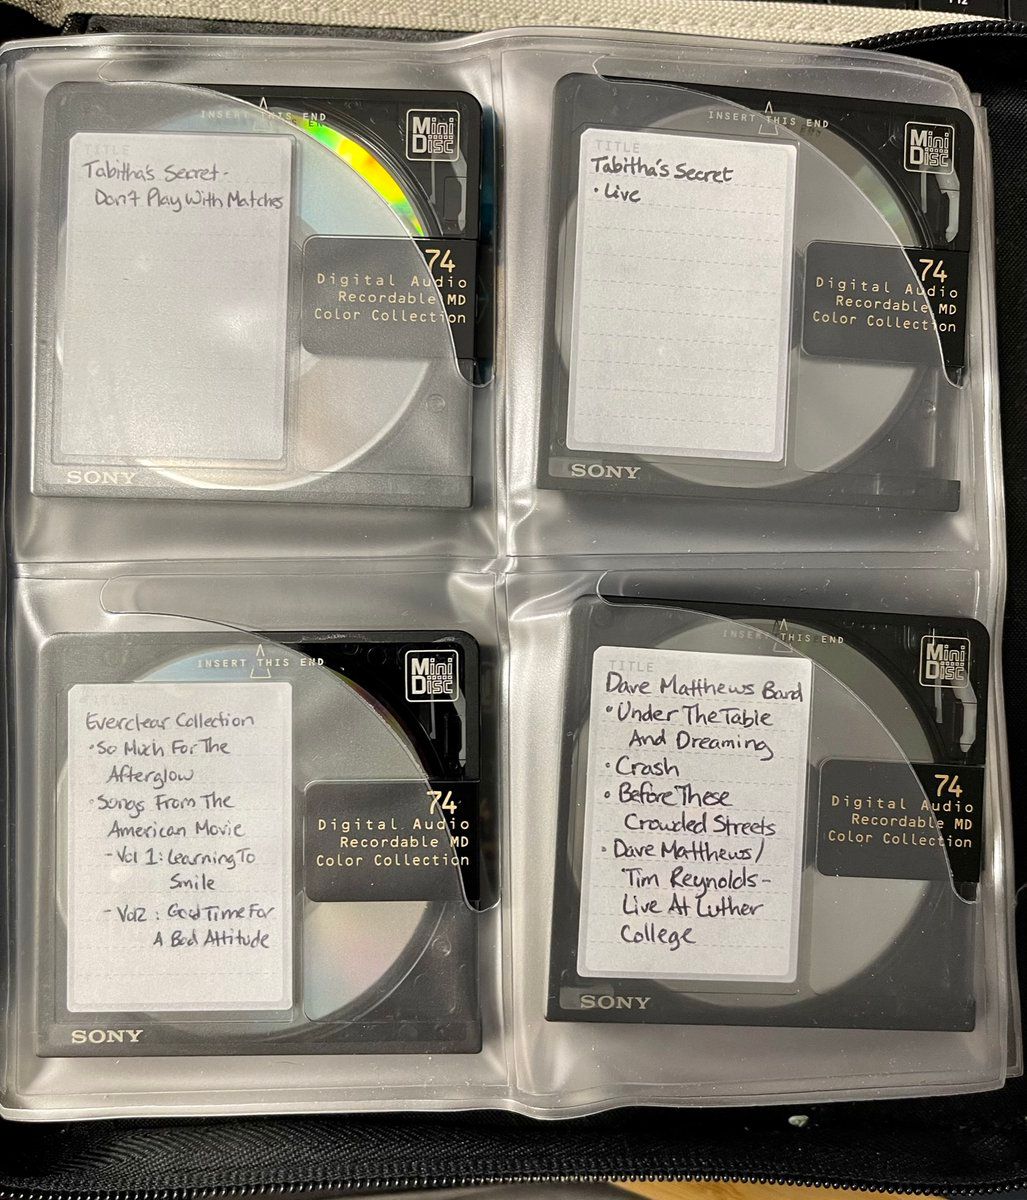 F12
INSERT THIS END
Mini
Disc
TITLE
Tabitha's Secret -
Don't Play With Matches
74
Digital Audio
Recordable MD
Color Collection
SONY
INSERT THIS END
Mini
Disc
TITLE
Tabitha's Secret
• Live
74
Digital Audio
Recordable MD
Color Collection
SONY
INSERT THIS END
Mini
Disc
Everclear Collection
• So Much For The
Afterglow
• Songs From The
American Movie
- Vol 1: Learning To
Smile
- Vol 2: Good Time For
A Bad Attitude
74
Digital Audio
Recordable MD
Color Collection
SONY
INSERT THIS END
Mini
Disc
TITLE
Dave Matthews Band
• Under The Table
And Dreaming
• Crash
• Before These
Crowded Streets
• Dave Matthews/
Tim Reynolds -
Live At Luther
College
74
Digital Audio
Recordable MD
Color Collection
SONY